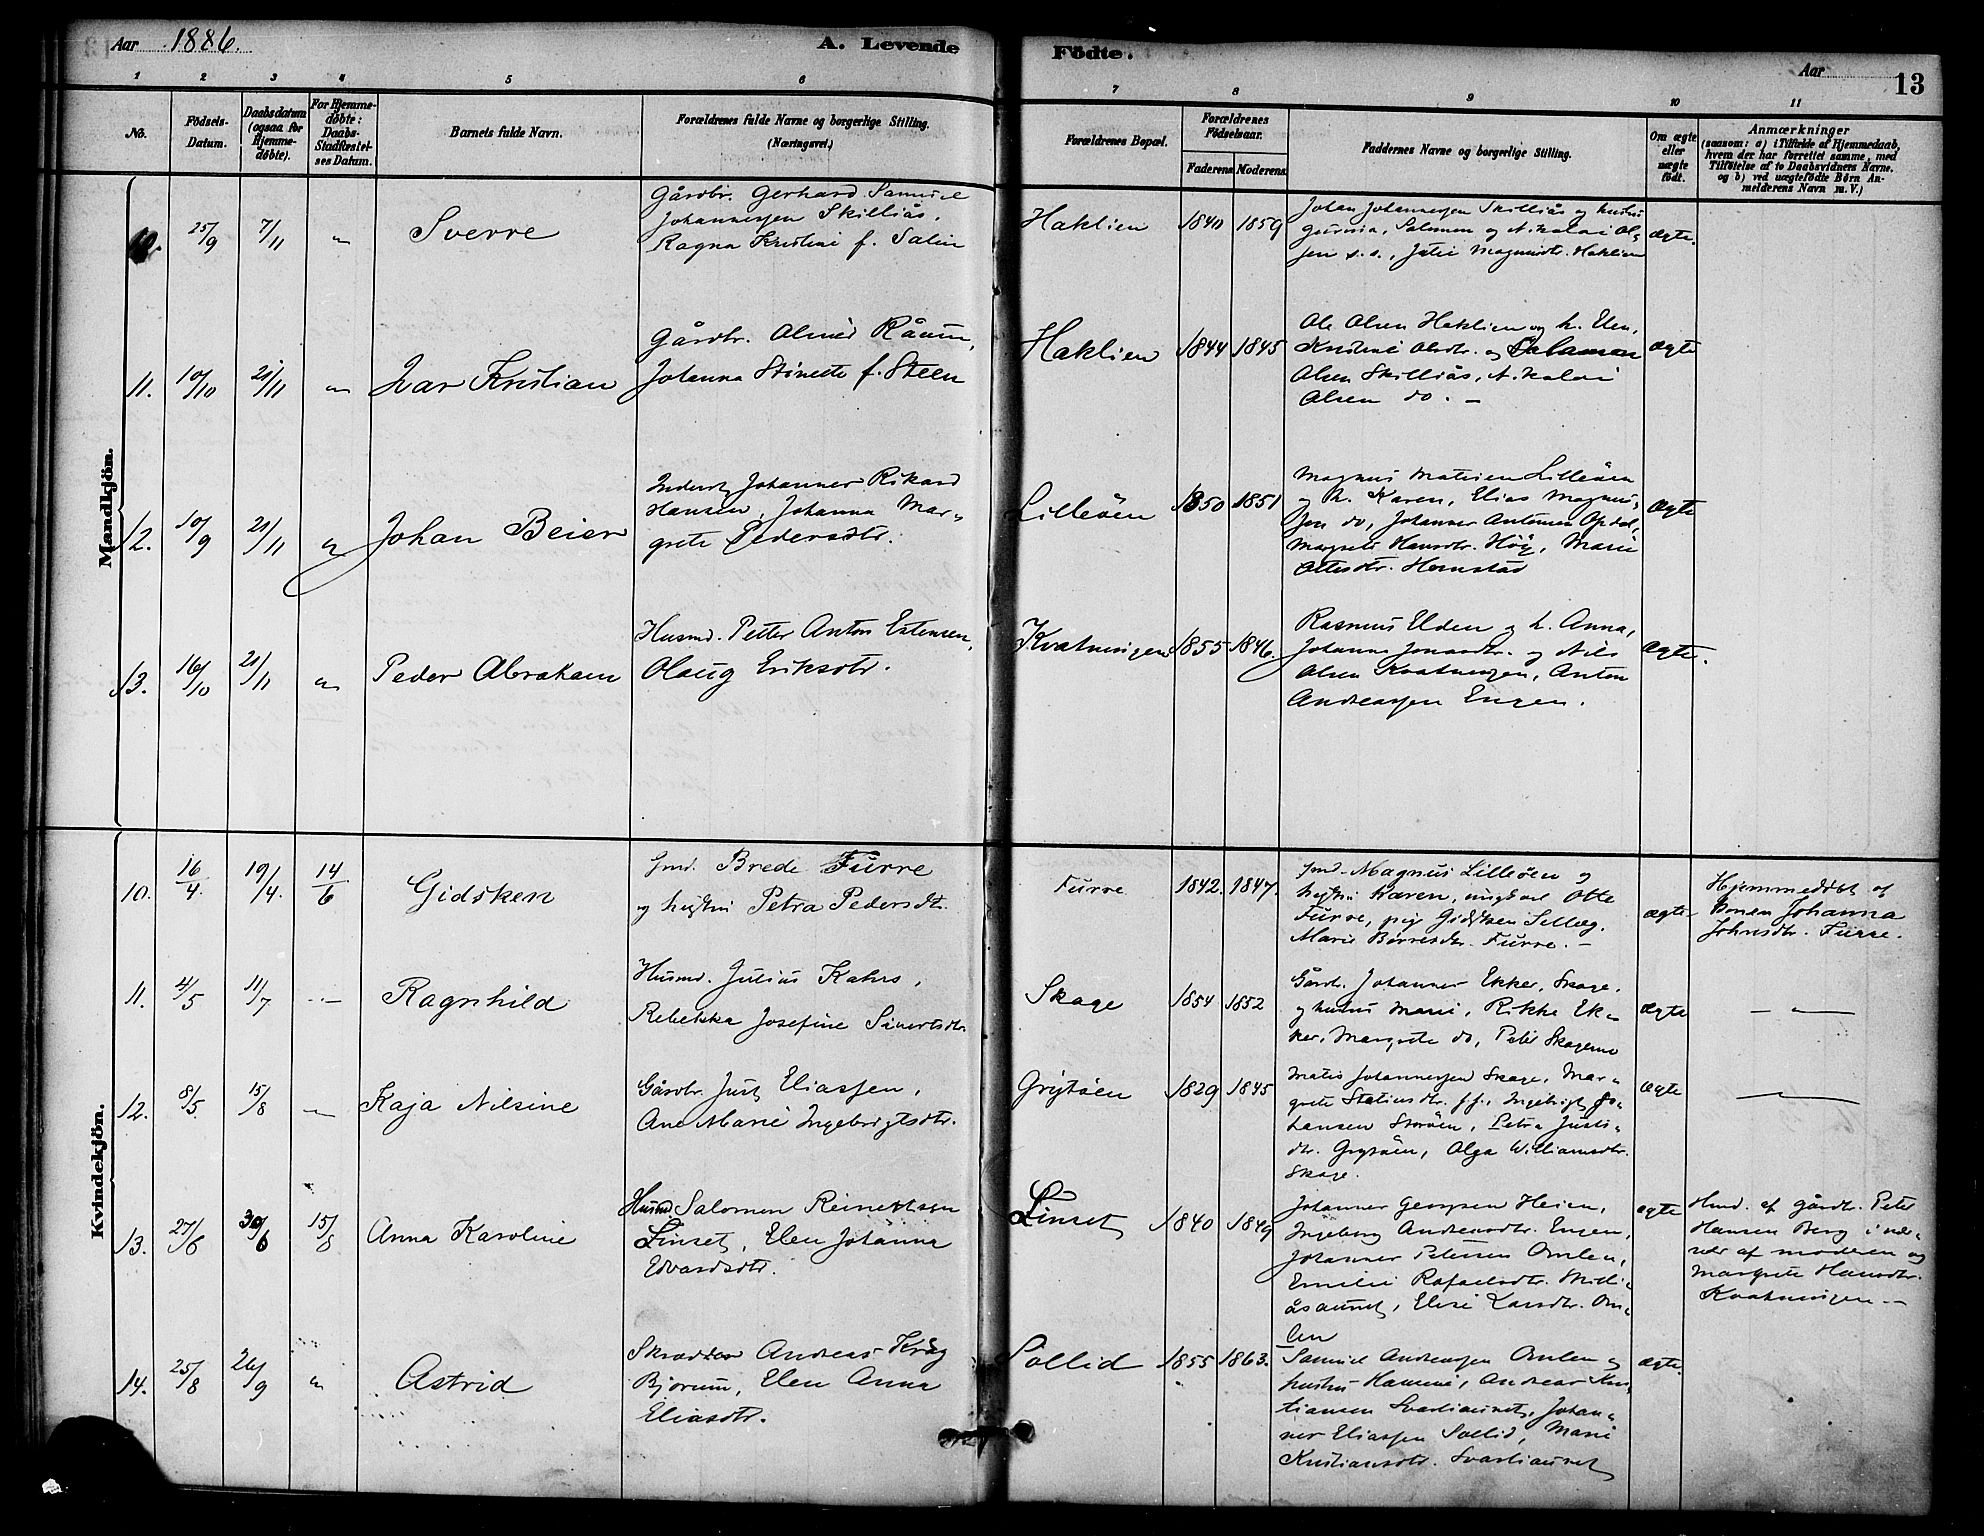 Aar 1886.
A. Levende
Födte.
Aar
13
1 2 3 4 5 6 7 8 9 10 11
No.
Födsels-
Datum.
Daabsdatum
(ogsaa for
Hjemme-
döbte).
For Hjemme-
döbte:
Daabs-
Stadfæstel-
ses Datum.
Barnets fulde Navn.
Forældrenes fulde Navne og borgerlige Stilling.
(Næringsvei.)
Forældrenes Bopæl.
Forældrenes
Födselsaar.
Faderens Moderens
Faddernes Navne og borgerlige Stilling.
Om ægte
eller
uægte
födt.
Anmærkninger
(saasom: a) i Tilfælde af Hjemmedaab,
hvem der har forrettet samme, med
Tilföielse af to Daabsvidners Navne.
og b) ved uægtefödte Börn An-
melderens Navn m. V.)
Mandkjön.
10. 25/9 7/11 " Sverre
Gårdbr. Gerhard Samuel
Johannessen Skilliås,
Ragna Kristine f. Salin
Haklien 1840 1859
Johan Johannessen Skilliås og hustru
Gurina, Salomon og Nikolai Ol-
sen s. s., Julie Magnusdtr. Haklien
ægte.
11. 10/10 21/11 " Ivar Kristian
Gårdbr. Råum,
Johanna f. Steen
Haklien 1844 1845
Ole Olsen Haklien og h. Elen,
Kristine Olsdtr. og Salamon
Olsen Skilliås, Nikolai
Olsen do. -
ægte
12. 10/9 21/11 " Johan Beier
Inderst Johannes Rikard
Hansen, Johanna Mar-
grete Pedersdtr.
Lilleöen 1850 1851
Magnus Matsien Lilleöen
og h. Karen, Elias Magnus-
sen do, Johannes Antonsen Opdal,
Margrete Hansdtr. Hög, Marie
Ottesdtr. Hemstad
ægte
13. 16/10 21/11 " Peder Abraham
Husmd. Petter Anton Estensen,
Olaug Eriksdtr.
Kvatningen 1855 1846.
Rasmus Elden og h. Anna,
Johanna Jonasdtr. og Nils
Olsen Kvatningen, Anton
Andreassen Engen.
ægte.
Kvindekjön.
10. 16/4. 19/4. 14/6 Gidsken
Gmd. Brede Furre
og hustru Petra Pedersdtr.
Furre 1842. 1847.
Gmd. Magnus Lilleöen og
hustru Karen, ungkarl Otte
Furre, pige Gidsken Selleg.
Marie Börresdtr. Furre. -
ægte
Hjemmedöbt af
konen Johanna
Johnsdtr. Furre.
11. 4/5 11/7 - Ragnhild
Husmd. Julius Kahrs,
Rebekka Josefine Sivertsdtr.
Skage 1854 1852
Gårdbr. Johannes Ekker, Skage,
og hustru Marie, Rikke Ek-
ker, Margrete do, Peter Skagemo
ægte
- " -
12. 8/5 15/8 - Kaja Nilsine
Gårdbr. Just Eliassen,
Ane Marie Ingebrigtsdtr.
Grytöen 1829 1845
Mates Johannessen Skage, Mar-
grete Statiusdtr. s.s., Ingebrigt Jo-
hansen Storöen, Petra Justs-
dtr. Grytöen, Olga Williamsdtr.
Skage.
ægte
- " -
13. 27/6 30/6 15/8 Anna Karoline
Husmd Salomon Reinertsen
Linset, Elen Johanna
Edvardsdtr.
Linset 1840 1849
Johannes Georgsen Heien,
Ingeborg Andreasdtr. Engen,
Johannes Petersen Omlen,
Emilie Rafaelsdtr. Skilli-
åsaunet, Elise Larsdtr. Om-
len
ægte
Hmd. af gårdbr. Peter
Hansen Berg i nær-
vær af moderen og
Margrete Hansdtr.
Kvatningen -
14. 25/8 26/9 " Astrid
Skrædder Andreas Krog
Bjorum, Elen Anna
Eliasdtr.
Sollid 1855 1863.
Samuel Andreassen Omlen og
hustru Hanna, Andreas Kri-
stiansen Svartiaunet, Johan-
nes Eliassen Sollid, Marie
Kristiansdtr. Svartiaunet
ægte.